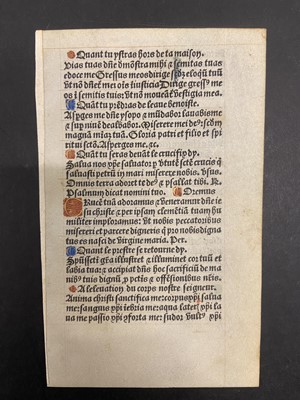 Quant tu ystras hors de ta maison.
Vias tuas dñe demõstra mihi & semitas tuas
edoce me Gressus meos dirige scdz eloquiũ tuũ
vt nõ dñet mei ois iniusticia Dirige gressꝰ me
os ĩ semitis tuis: vt nõ moueãt̃ vestigia mea.
Quãt tu prẽdras de leaue benoiste.
Asperges me dñe ysopo & mũdabor lauabis me
& sup niuẽ dealbabor. Miserere mei deꝰ: scdm
magnã miaz tuã. Gloria patri et filio et spi
ritui sctõ. Asperges me. &c.
Quãt tu seras deuãt le crucifix dy.
Salua nos xpe saluator p virtutẽ scte crucis q̃
saluasti petrũ in mari miserere nobis. vsus.
Omnis terra adoret te deꝰ & psallat tibi. R̃.
Psalmum dicat nomini tuo. Oremus
Pcioctẽ tuã adoramus & veneramur dñe ie
su christe & per ipsam clemẽtiã tuam hu
militer imploramus: vt nobis peccatoribus
misereri et parcere digneris q̃ pro nobis digna
tus es nasci de virgine maria. Per.
Quant le prestre se retourne dy.
Spũssctĩ grã illustret & illuminet cor tuũ et
labia tua: & accipiat dñs hoc sacrificiũ de ma
nibꝰ tuis dignũ p pctis & offẽsionibus nr̃is.
A leleuation du corps nostre seigneur.
Anima christi sanctifica me: corpus xp̃i salua
me: sanguis xp̃i iebria me: aqua laterꝰ xp̃i la
ua me passio xp̃i cõforta me: sudor vultꝰ xp̃i